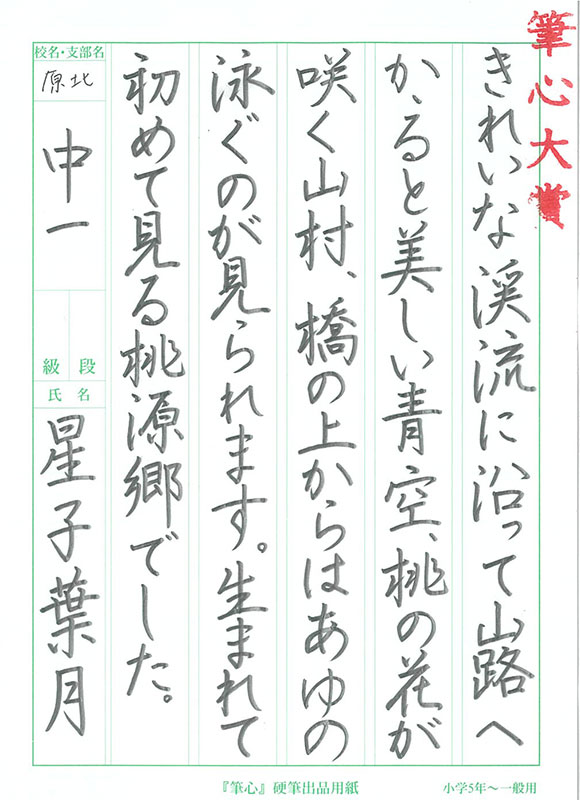 筆心大賞
きれいな渓流に沿って山路へ
かゝると美しい青空、桃の花が
咲く山村、橋の上からはあゆの
泳ぐのが見られます。生まれて
初めて見る桃源郷でした。
校名・支部名
原北
中一
級 段
氏 名
星子葉月
『筆心』硬筆出品用紙
小学5年～一般用